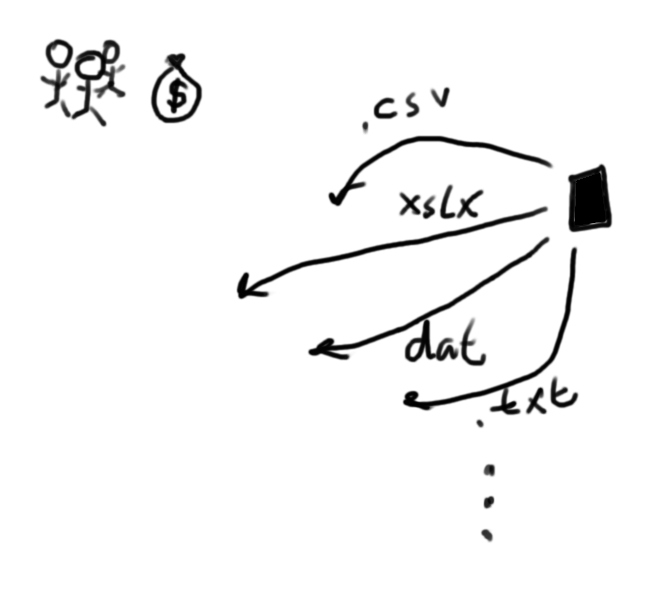 $
.csv
xslx
dat
.txt